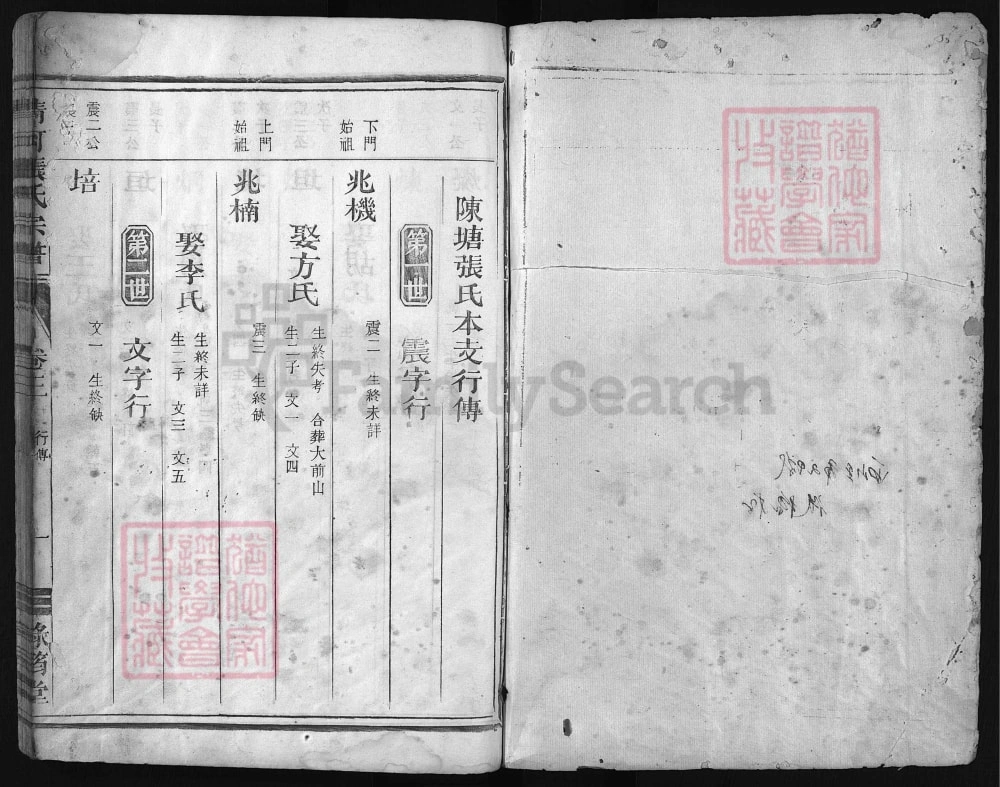 陳塘張氏本支行傳
第一世 震字行
下門始祖
兆機 震二 生終未詳
娶方氏 生終失考 合葬大前山
生二子 文一 文四
上門始祖
兆楠 震三 生終缺
娶李氏 生終未詳
生二子 文三 文五
第二世 文字行
震二公長子
培 文一 生終缺
清河張氏宗譜 卷二 行傳 一
猶他家譜學會收藏
猶他家譜學會收藏
FamilySearch